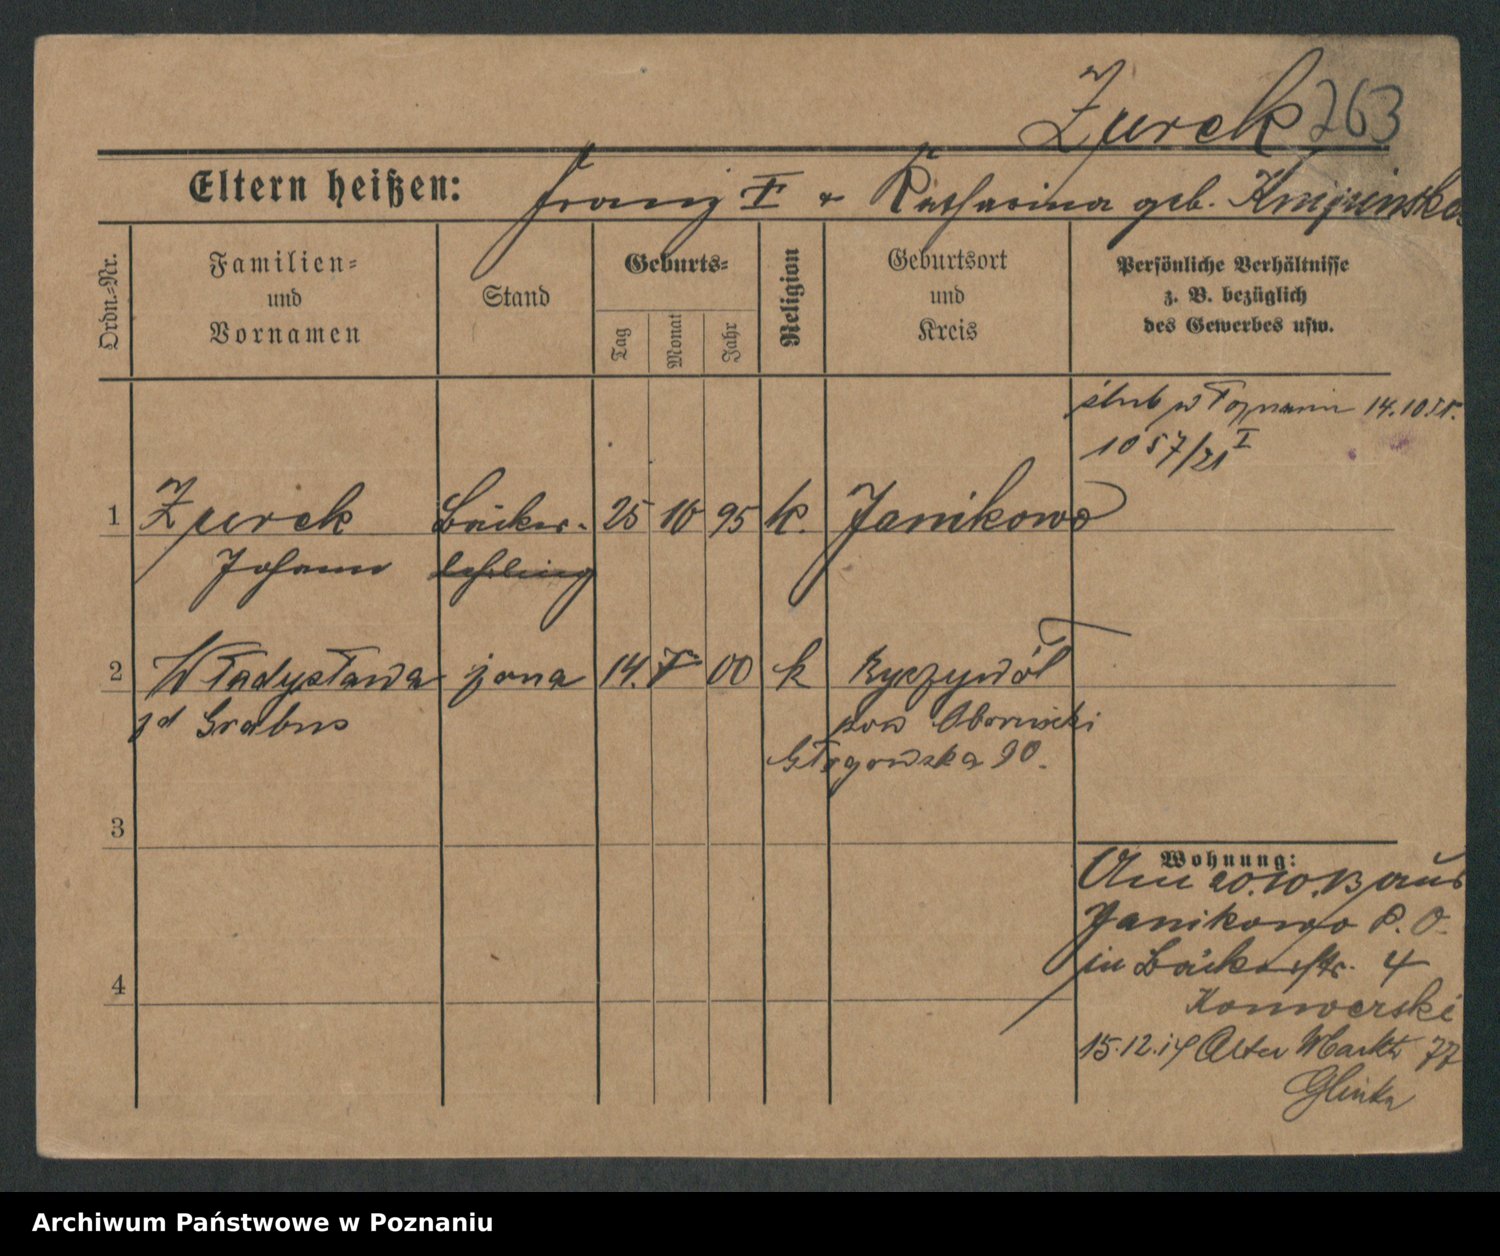 Zurek 263
Eltern heißen: Franz I u Katharina geb.
Ordn.-Nr.
Familien-
und
Vornamen
Stand
Geburts-
Tag
Monat
Jahr
Religion
Geburtsort
und
Kreis
Persönliche Verhältnisse
z. B. bezüglich
des Gewerbes usw.
ślub w Poznaniu 14.10.
1057/21 I
1 Zurek Bäcker- 25 10 95 k. Janikowo
Johann lehrling
2 Władysława żona 14. 00 k Ryczywół
zd Grabus pow Obornicki
Głogowska 90.
3
Wohnung:
Am 20.10.13 aus
Janikowo P. O.
in Bäckerstr. 4
4
Konwerski
15.12.14 Alter Markt 77
Glinka
Archiwum Państwowe w Poznaniu